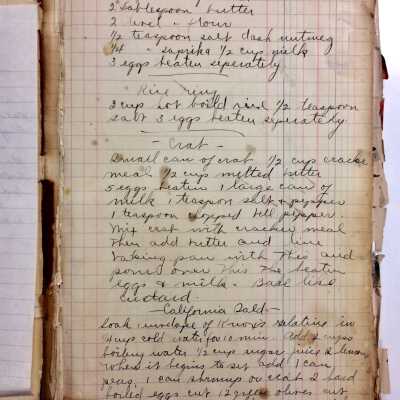 2 tablespoon butter
2 level " flour
1/2 teaspoon salt dash nutmeg
1/4 " saprika 1/2 cup milk
3 eggs beaten seperately
Rice ring
3 cup hot boild rice 1/2 teaspoon
salt 3 eggs beaten seperately
- Crat -
Small can of crat 1/2 cup cracker
meal 1/2 cup melted butter
5 eggs beaten 1 large can of
milk 1 teaspoon salt & pepper
1 teaspoon chopped bell pepper.
Mix crat with cracker meal
then add butter and line
baking pan with this and
pour over this the beaten
eggs & milk - Bake like
custard.
- California Salad -
Soak 1 envelope of Knox gelatine in
1/4 cup cold water for 10 min. Add 2 cups
boiling water 1/2 cup sugar juice 2 lemons
When it begins to set add 1 can
peas, 1 can shrimps or crab 2 hard
boiled eggs cut 12 green olives cut